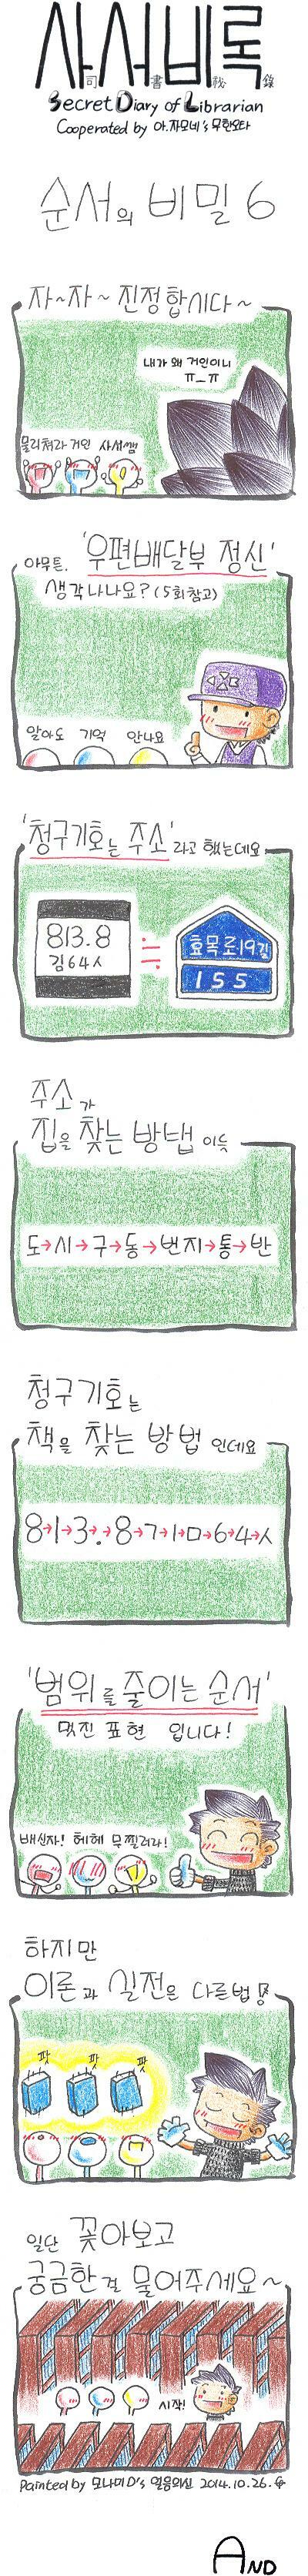 사서비록
司書秘錄
Secret Diary of Librarian
Cooperated by 아.자모네's 무한오타
순서의 비밀 6
자~자~ 진정합시다~
내가 왜 거인이니
ㅠ_ㅠ
물리쳐라 거인 사서쌤
아무튼. '우편배달부 정신'
생각나나요? (5회참고)
알아도 기억 안나요
'청구기호는 주소'라고 했는데요
813.8
김64ㅅ
효목로19길
155
주소가
집을 찾는 방법이듯
도→시→구→동→번지→통→반
청구기호는
책을 찾는 방법인데요
8→1→3→.→8→ㄱ→ㅣ→ㅁ→6→4→ㅅ
'범위를 줄이는 순서'
멋진 표현 입니다!
배신자! 헤헤 무찔러라!
하지만
이론과 실전은 다른법
팟 팟 팟
일단 꽂아보고
궁금한걸 물어주세요~
시작!
Painted by 모나미D's 얼음의신 2014.10.26.
AND